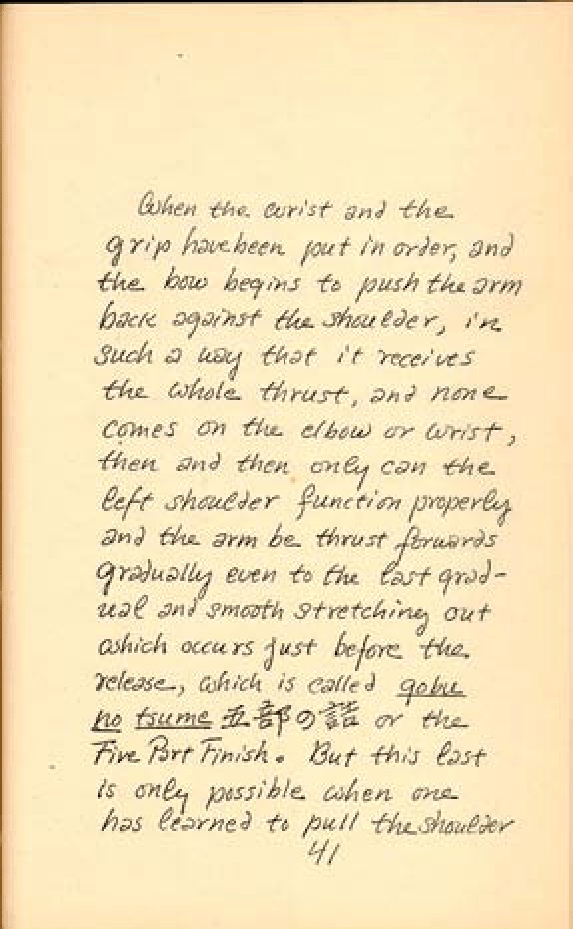 When the wrist and the
grip have been put in order, and
the bow begins to push the arm
back against the shoulder, in
such a way that it receives
the whole thrust, and none
comes on the elbow or wrist,
then and then only can the
left shoulder function properly
and the arm be thrust forwards
gradually even to the last grad-
ual and smooth stretching out
which occurs just before the
release, which is called gobu
no tsume 五部の詰 or the
Five Part Finish. But this last
is only possible when one
has learned to pull the shoulder
41